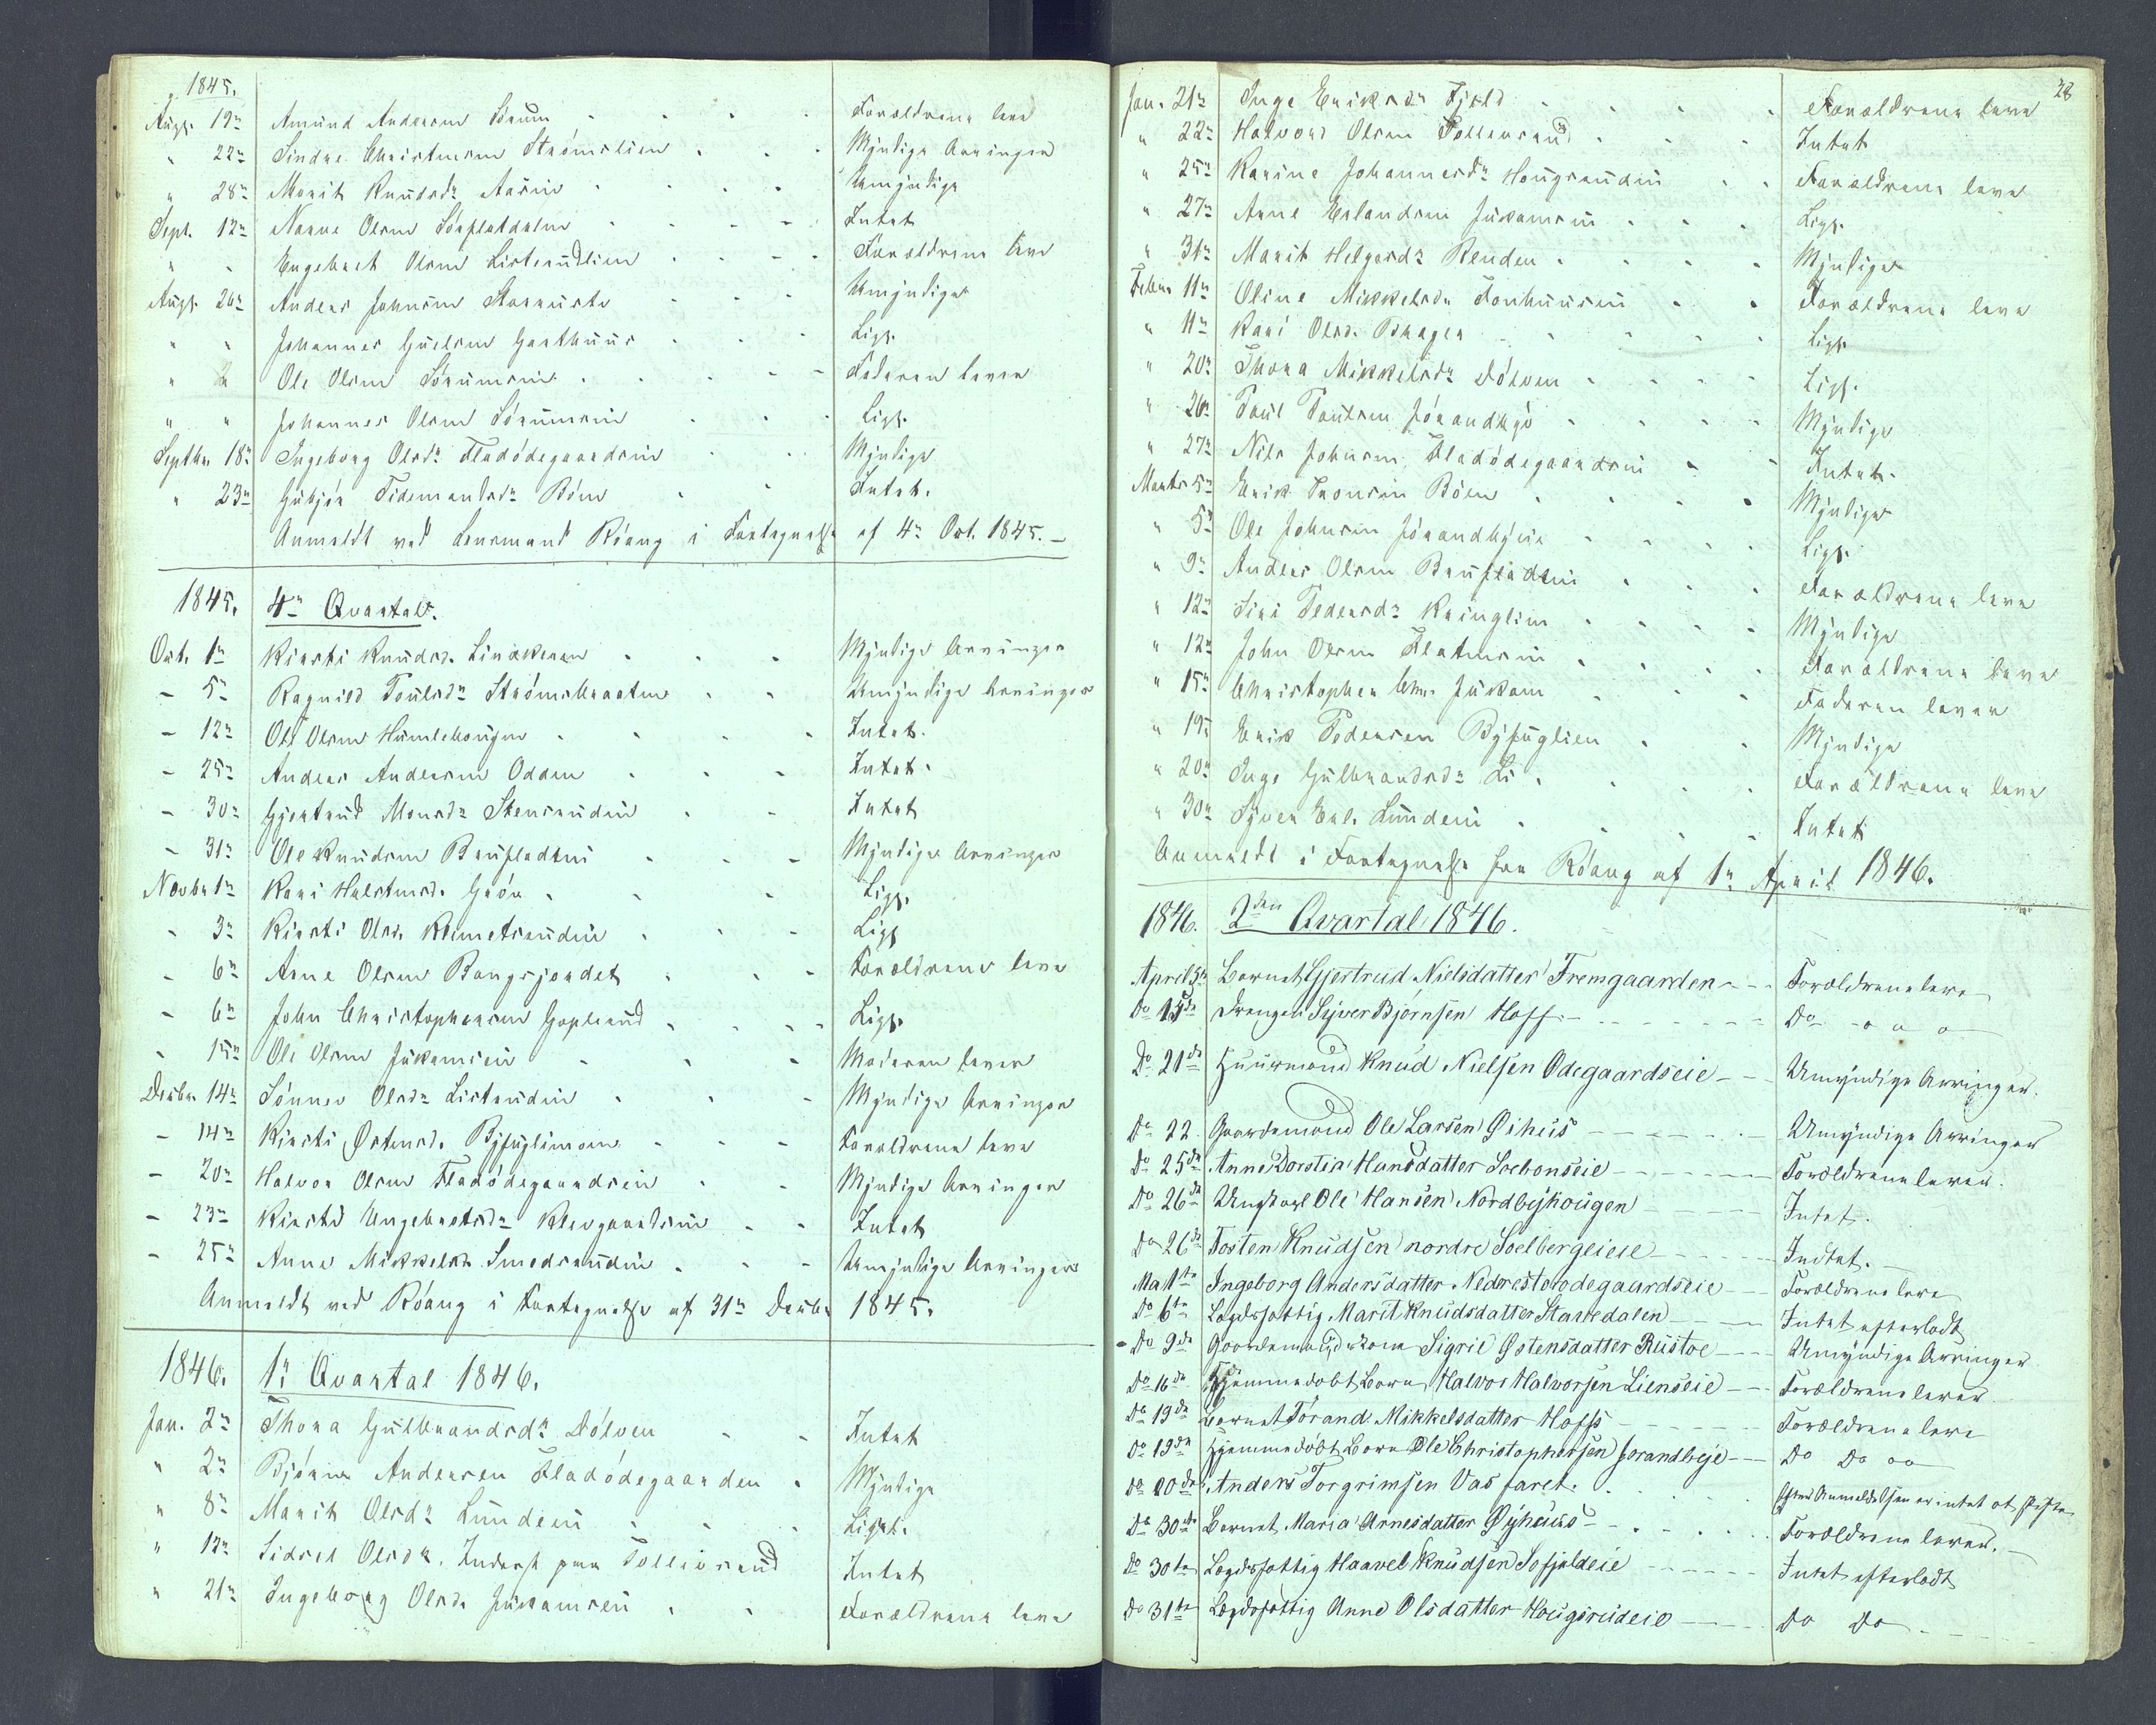 1845.
Augs. 19n Amund Andersen Sørum Forældrene leve
" 22n Sindre Christensen Strømslien Myndige Arvinger
" 28n Marit Knudsdr Umyndige
Sept. 12n Olsen Intet
" " Engebret Olsen Forældrene leve
Augs. 26n Anders Johnsen Umyndige
" " Johannes Garthuus Ligs.
" " Ole Olsen Sørumseie Faderen lever
" " Johannes Olsen Sørumseie Ligs.
Septbr. 18n Ingeborg Olsdr Fladødegaardseie Myndige
" 23n Gubjør Tidemandsdr Bøen Intet.
Anmeldt ved Lensmand Røang i Fortegnelse af 4n Oct. 1845.
1845. 4n Qvartal.
Oct. 1n Kiersti Knudsd. Myndige Arvinger
- 5n Ragnild Poulsdr Strømsbraaten Umyndige Arvinger
- 12n Ole Olsen Humlehougen Intet.
- 25n Anders Andersen Odden Intet.
- 30n Gjertrud Monsdr Stensrudeie Intet
- 31n Ole Knudsen Brufladteie Myndige Arvinger
Novbr 1n Kari Halstensd. Grøv Ligs.
- 3n Kiersti Olsd. Klemetsrudeie Ligs
- 6n Arne Olsen Bangsjordet Forældrene leve
- 6n John Christophersen Goplerud Ligs.
- 15n Ole Olsen Jukamseie Moderen lever
Decbr. 14n Sønnev Olsdr Listrudeie Myndige Arvinger
- 14n Kiersti Østensd. Byfuglimoen Forældrene leve
- 20n Halvor Olsen Fladødegaardseie Myndige Arvinger
- 23n Kiersti Engebretsdr Klevgaardseie Intet
- 25n Anne Mikkelsdr Smedsrudeie Umyndige Arvinger
Anmeldt ved Røang i Fortegnelse af 31n Decbr 1845.
1846. 1n Qvartal 1846.
Jan. 2n Thora Gulbrandsdr Dølven Intet
" 2n Bjørn Andersen Fladødegaarden Myndige
" 8n Marit Olsdr Lundeie Ligst.
" 12n Sidsel Olsdr. Inderst paa Tollevsrud Intet
" 21n Ingeborg Olsd. Jukamseie Forældrene leve
28
Jan. 21n Inge Eriksdr Fjeld Forældrene leve
" 22n Halvord Olsen Tollevsrud Intet
" 25n Karine Johannesdr Hougsrudeie Forældrene leve
" 27n Arne Erlandsen Jukamseie Ligs.
" 31n Marit Helgesdr Renden Myndige
Febr. 11n Oline Mikkelsdr Tonhuuseie Forældrene leve
" 11n Kari Olsd. Ligs
" 20n Thora Mikkelsdr Dølven Ligs.
" 26n Poul Poulsen Jørandbye Myndige
" 27n Nils Johnsen Fladødegaardseie Intet.
Marts 5n Erik Trondsen Bøen Myndige
" 5n Ole Johnsen Jørandbyeie Ligs.
" 9n Anders Olsen Brufladteie Forældrene leve
" 12n Siri Pedersdr Kringlien Myndige
" 12n John Olsen Flatenseie Forældrene leve
" 15n Christopher Chr. Jukam Faderen lever
" 19n Erik Pedersen Byfuglien Myndige
" 20n Inge Gulbrandsdr Li Forældrene leve
" 30n Syver Erl. Lundeie Intet
Anmeldt i Fortegnelse fra Røang af 1n April 1846.
1846. 2den Qvartal 1846.
April 5te Barnet Gjertrud Nielsdatter Fremgaarden Forældrene leve
Do 15de Drengen Syver Bjørnsen Hoff Do - o o o
Do 21de Huusmand Knud Nielsen Odegaardseie Umyndige Arvinger.
Do 22 Gaardemand Ole Larsen Øihus Umyndige Arvinger
Do 25de Anne Dorotia Hansdatter Forældrene lever.
Do 26de Ungkarl Ole Hansen Nordbyhougen Intet.
Do 26de Tosten Knudsen nordre Soelbergeieie Indtet.
Mai 1ste Ingeborg Andersdatter Nederesteødegaardseie Forældrene leve
Do 6te Lægdsfattig Marit Knudsdatter Stavedalen Intet efterladt
Do 9de Gaardemandskone Sigrie Østensdatter Rustoe Umyndige Arvinger
Do 16de Hjemmedøbt Barn Halvor Halvorsen Lienseie Forældrene lever
Do 19de Barnet Jørand Mikkelsdatter Hoffs Forældrene leve
Do 19de Hjemmedøbt Barn Ole Christophersen Jørandbye Do Do oo
Do 20de Anders Torgrimsen Vasfaret. efter Anmeldelsen er intet at skifte
Do 30te Barnet Maria Arnesdatter Øyhuus Forældrene lever.
Do 30te Lægdsfattig Haavel Knudsen Intet efterladt
Do 31te Lægdsfattig Anne Olsdatter Hougsrudeie Do Do